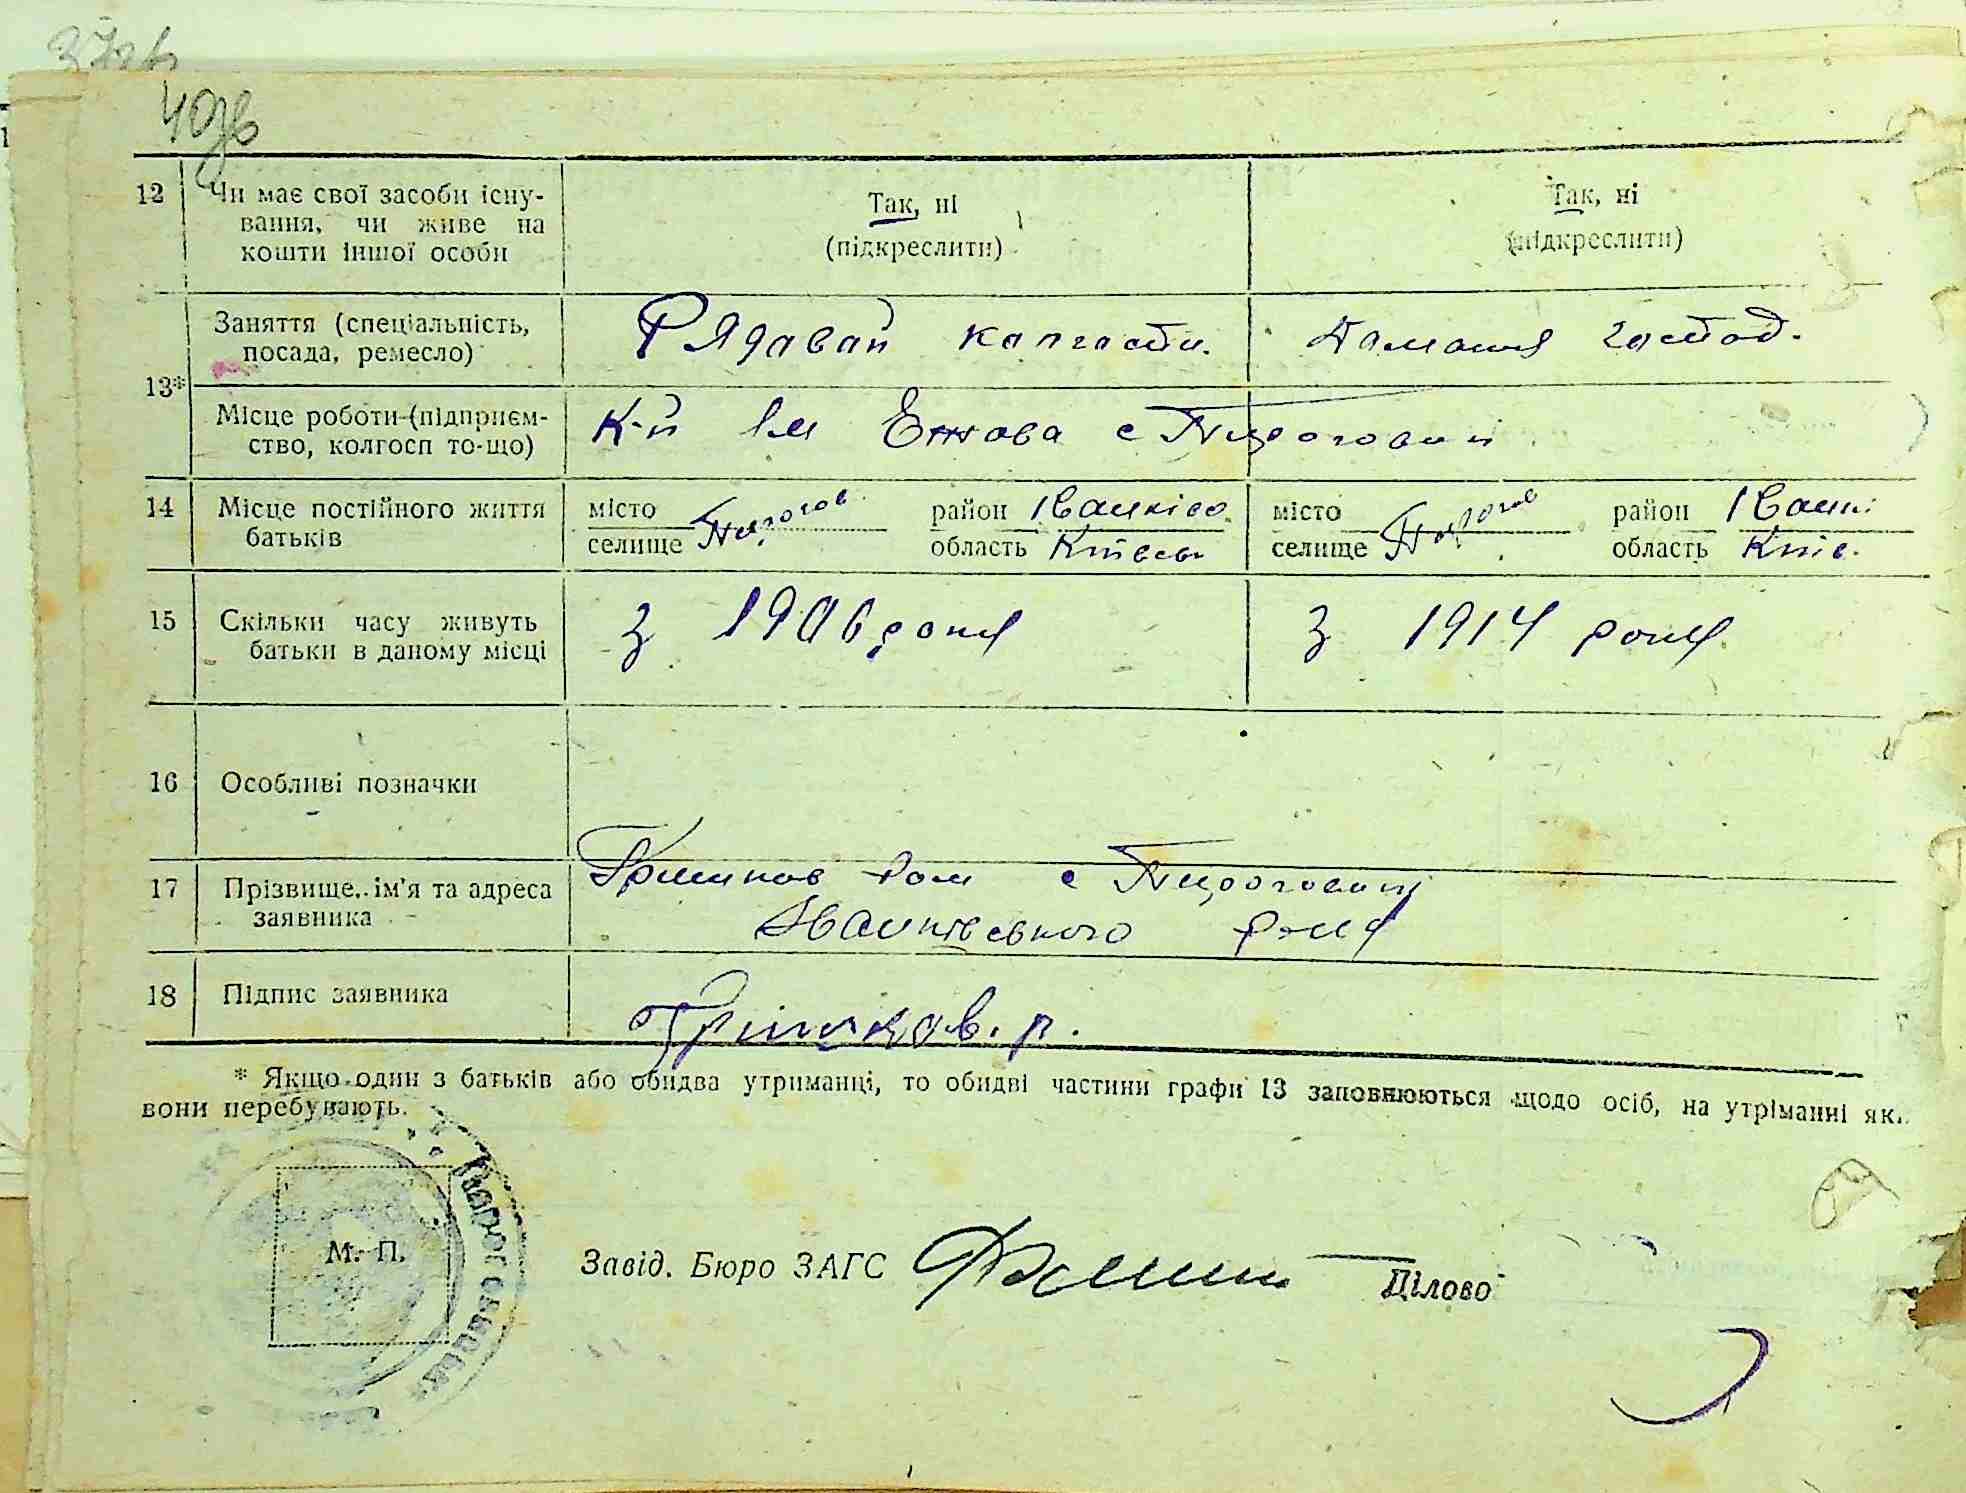 40зв
12 Чи має свої засоби існу-
вання, чи живе на
кошти іншої особи
Так, ні
(підкреслити)
Так, ні
(підкреслити)
13*
Заняття (спеціальність,
посада, ремесло)
Рядавай
Місце роботи (підприєм-
ство, колгосп то-що)
К-п Ім Ежова с Пироговичі
14 Місце постійного життя
батьків
місто
селище Пирогов
район Іванківс
область Київськ
місто
селище Пирогов
район Іванкі
область Київ.
15 Скільки часу живуть
батьки в даному місці
З 1906 рокя
З 1914 рокя
16 Особливі позначки
17 Прізвище, ім'я та адреса
заявника
с Пироговичі
Іванківського р-на
18 Підпис заявника
* Якщо один з батьків або обидва утриманці, то обидві частини графи 13 заповнюються щодо осіб, на утріманні як
вони перебувають.
М. П.
Завід. Бюро ЗАГС
Діловод